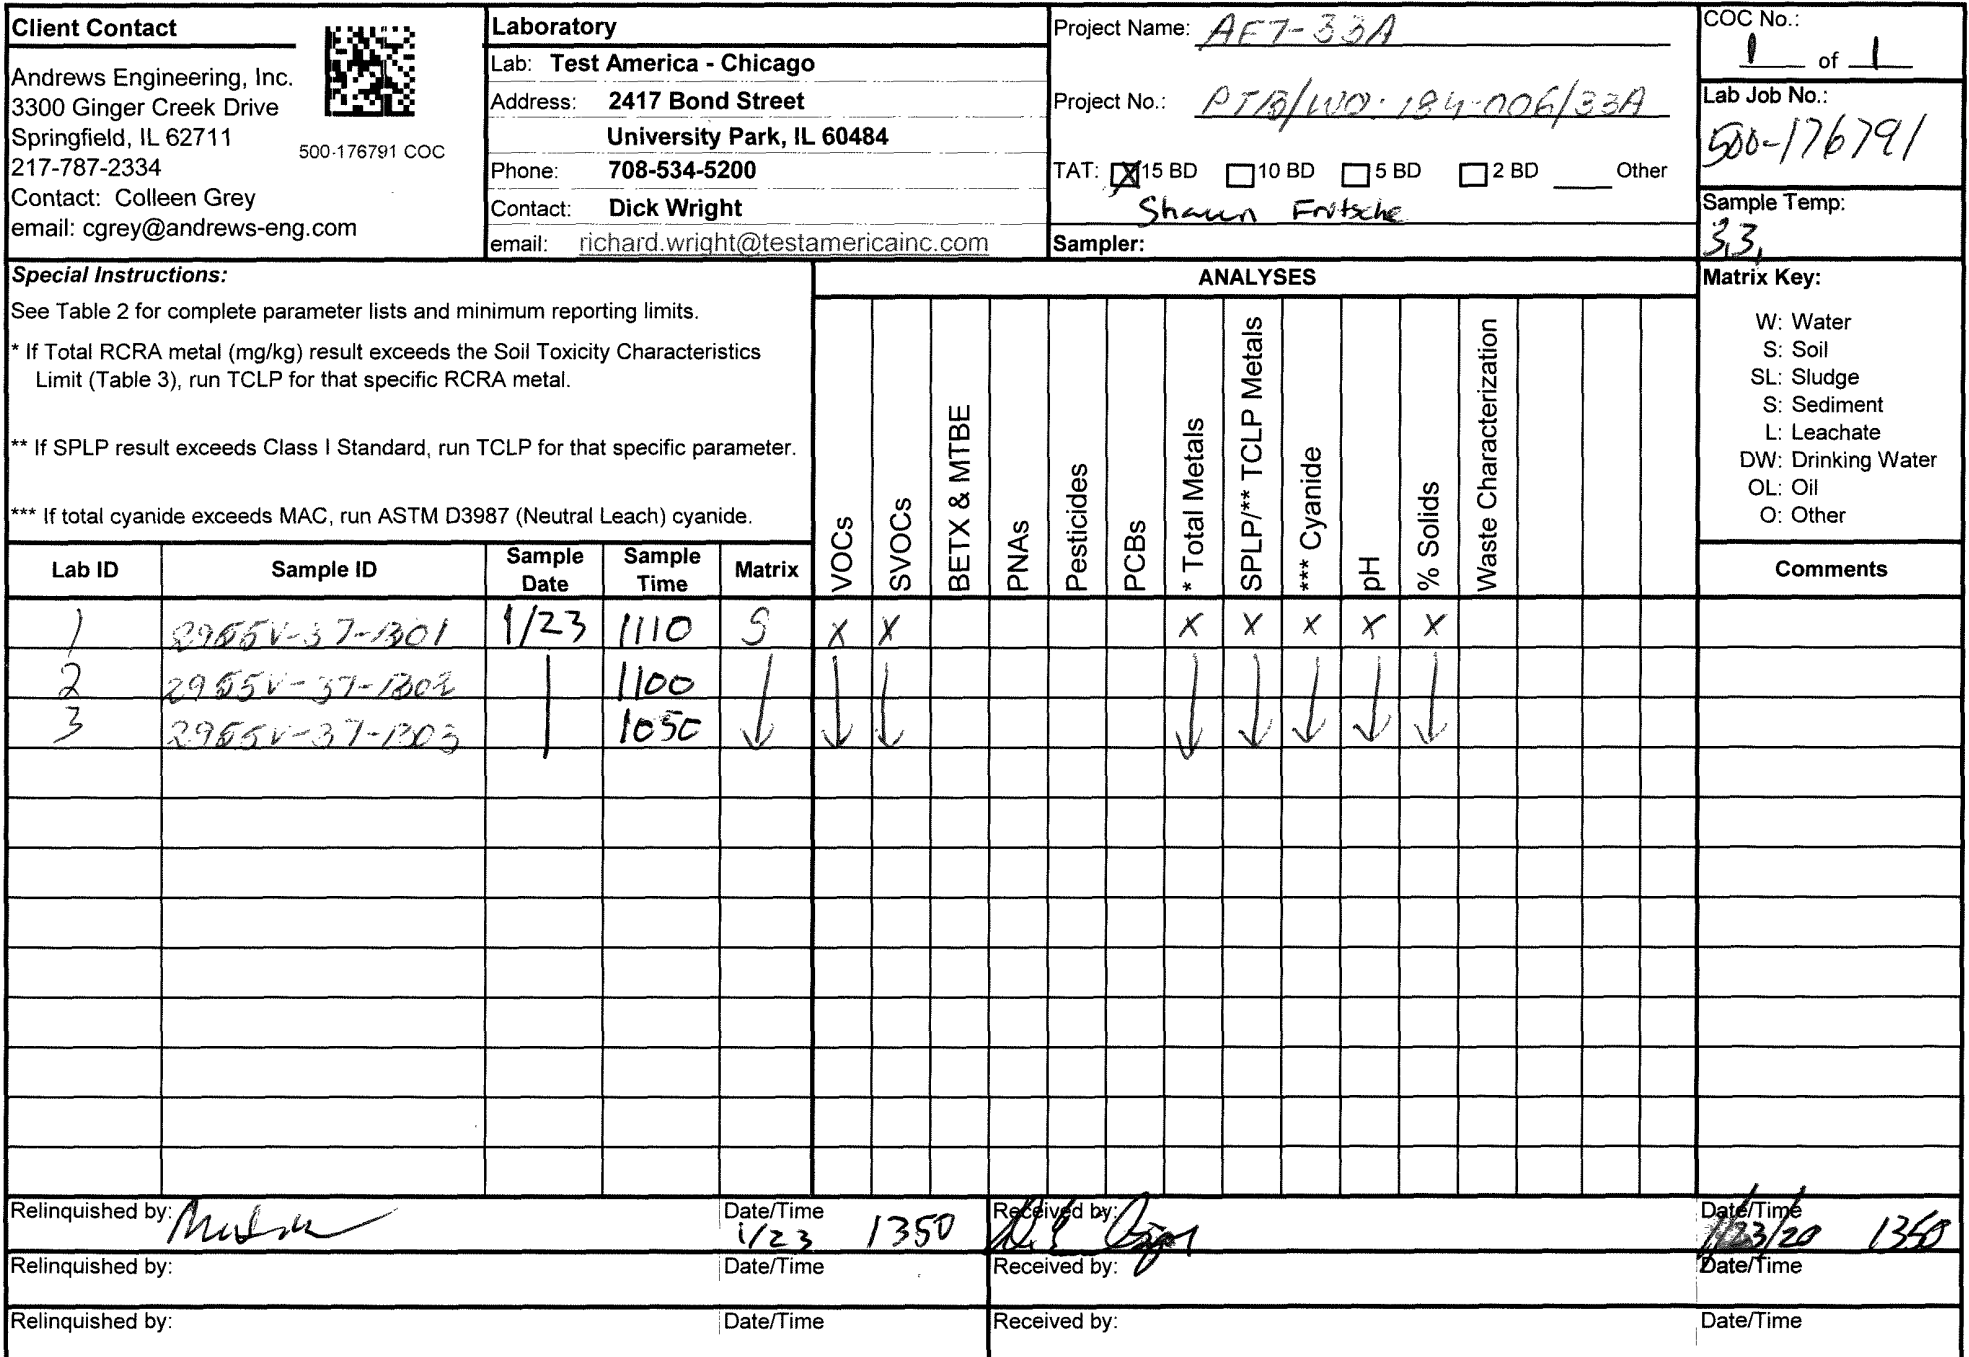 Client Contact
Andrews Engineering, Inc.
3300 Ginger Creek Drive
Springfield, IL 62711
217-787-2334
Contact: Colleen Grey
email: cgrey@andrews-eng.com
500-176791 COC
Laboratory
Lab: Test America - Chicago
Address: 2417 Bond Street
University Park, IL 60484
Phone: 708-534-5200
Contact: Dick Wright
email: richard.wright@testamericainc.com
Project Name: AE7-33A
Project No.: PTB/WO: 184-006/33A
TAT: X 15 BD 10 BD 5 BD 2 BD Other
Shaun Fritsche
Sampler:
COC No.:
1 of 1
Lab Job No.:
500-176791
Sample Temp:
3.3
Special Instructions:
See Table 2 for complete parameter lists and minimum reporting limits.
* If Total RCRA metal (mg/kg) result exceeds the Soil Toxicity Characteristics
Limit (Table 3), run TCLP for that specific RCRA metal.
** If SPLP result exceeds Class I Standard, run TCLP for that specific parameter.
*** If total cyanide exceeds MAC, run ASTM D3987 (Neutral Leach) cyanide.
ANALYSES
VOCs
SVOCs
BETX & MTBE
PNAs
Pesticides
PCBs
* Total Metals
SPLP/** TCLP Metals
*** Cyanide
pH
% Solids
Waste Characterization
Matrix Key:
W: Water
S: Soil
SL: Sludge
S: Sediment
L: Leachate
DW: Drinking Water
OL: Oil
O: Other
Lab ID Sample ID Sample Date Sample Time Matrix Comments
1 2955V-37-B01 1/23 1110 S X X X X X X X
2 2955V-37-B02 1100
3 2955V-37-B03 1050
Relinquished by: Date/Time 1/23 1350 Received by: Date/Time 1/23/20 1350
Relinquished by: Date/Time Received by: Date/Time
Relinquished by: Date/Time Received by: Date/Time